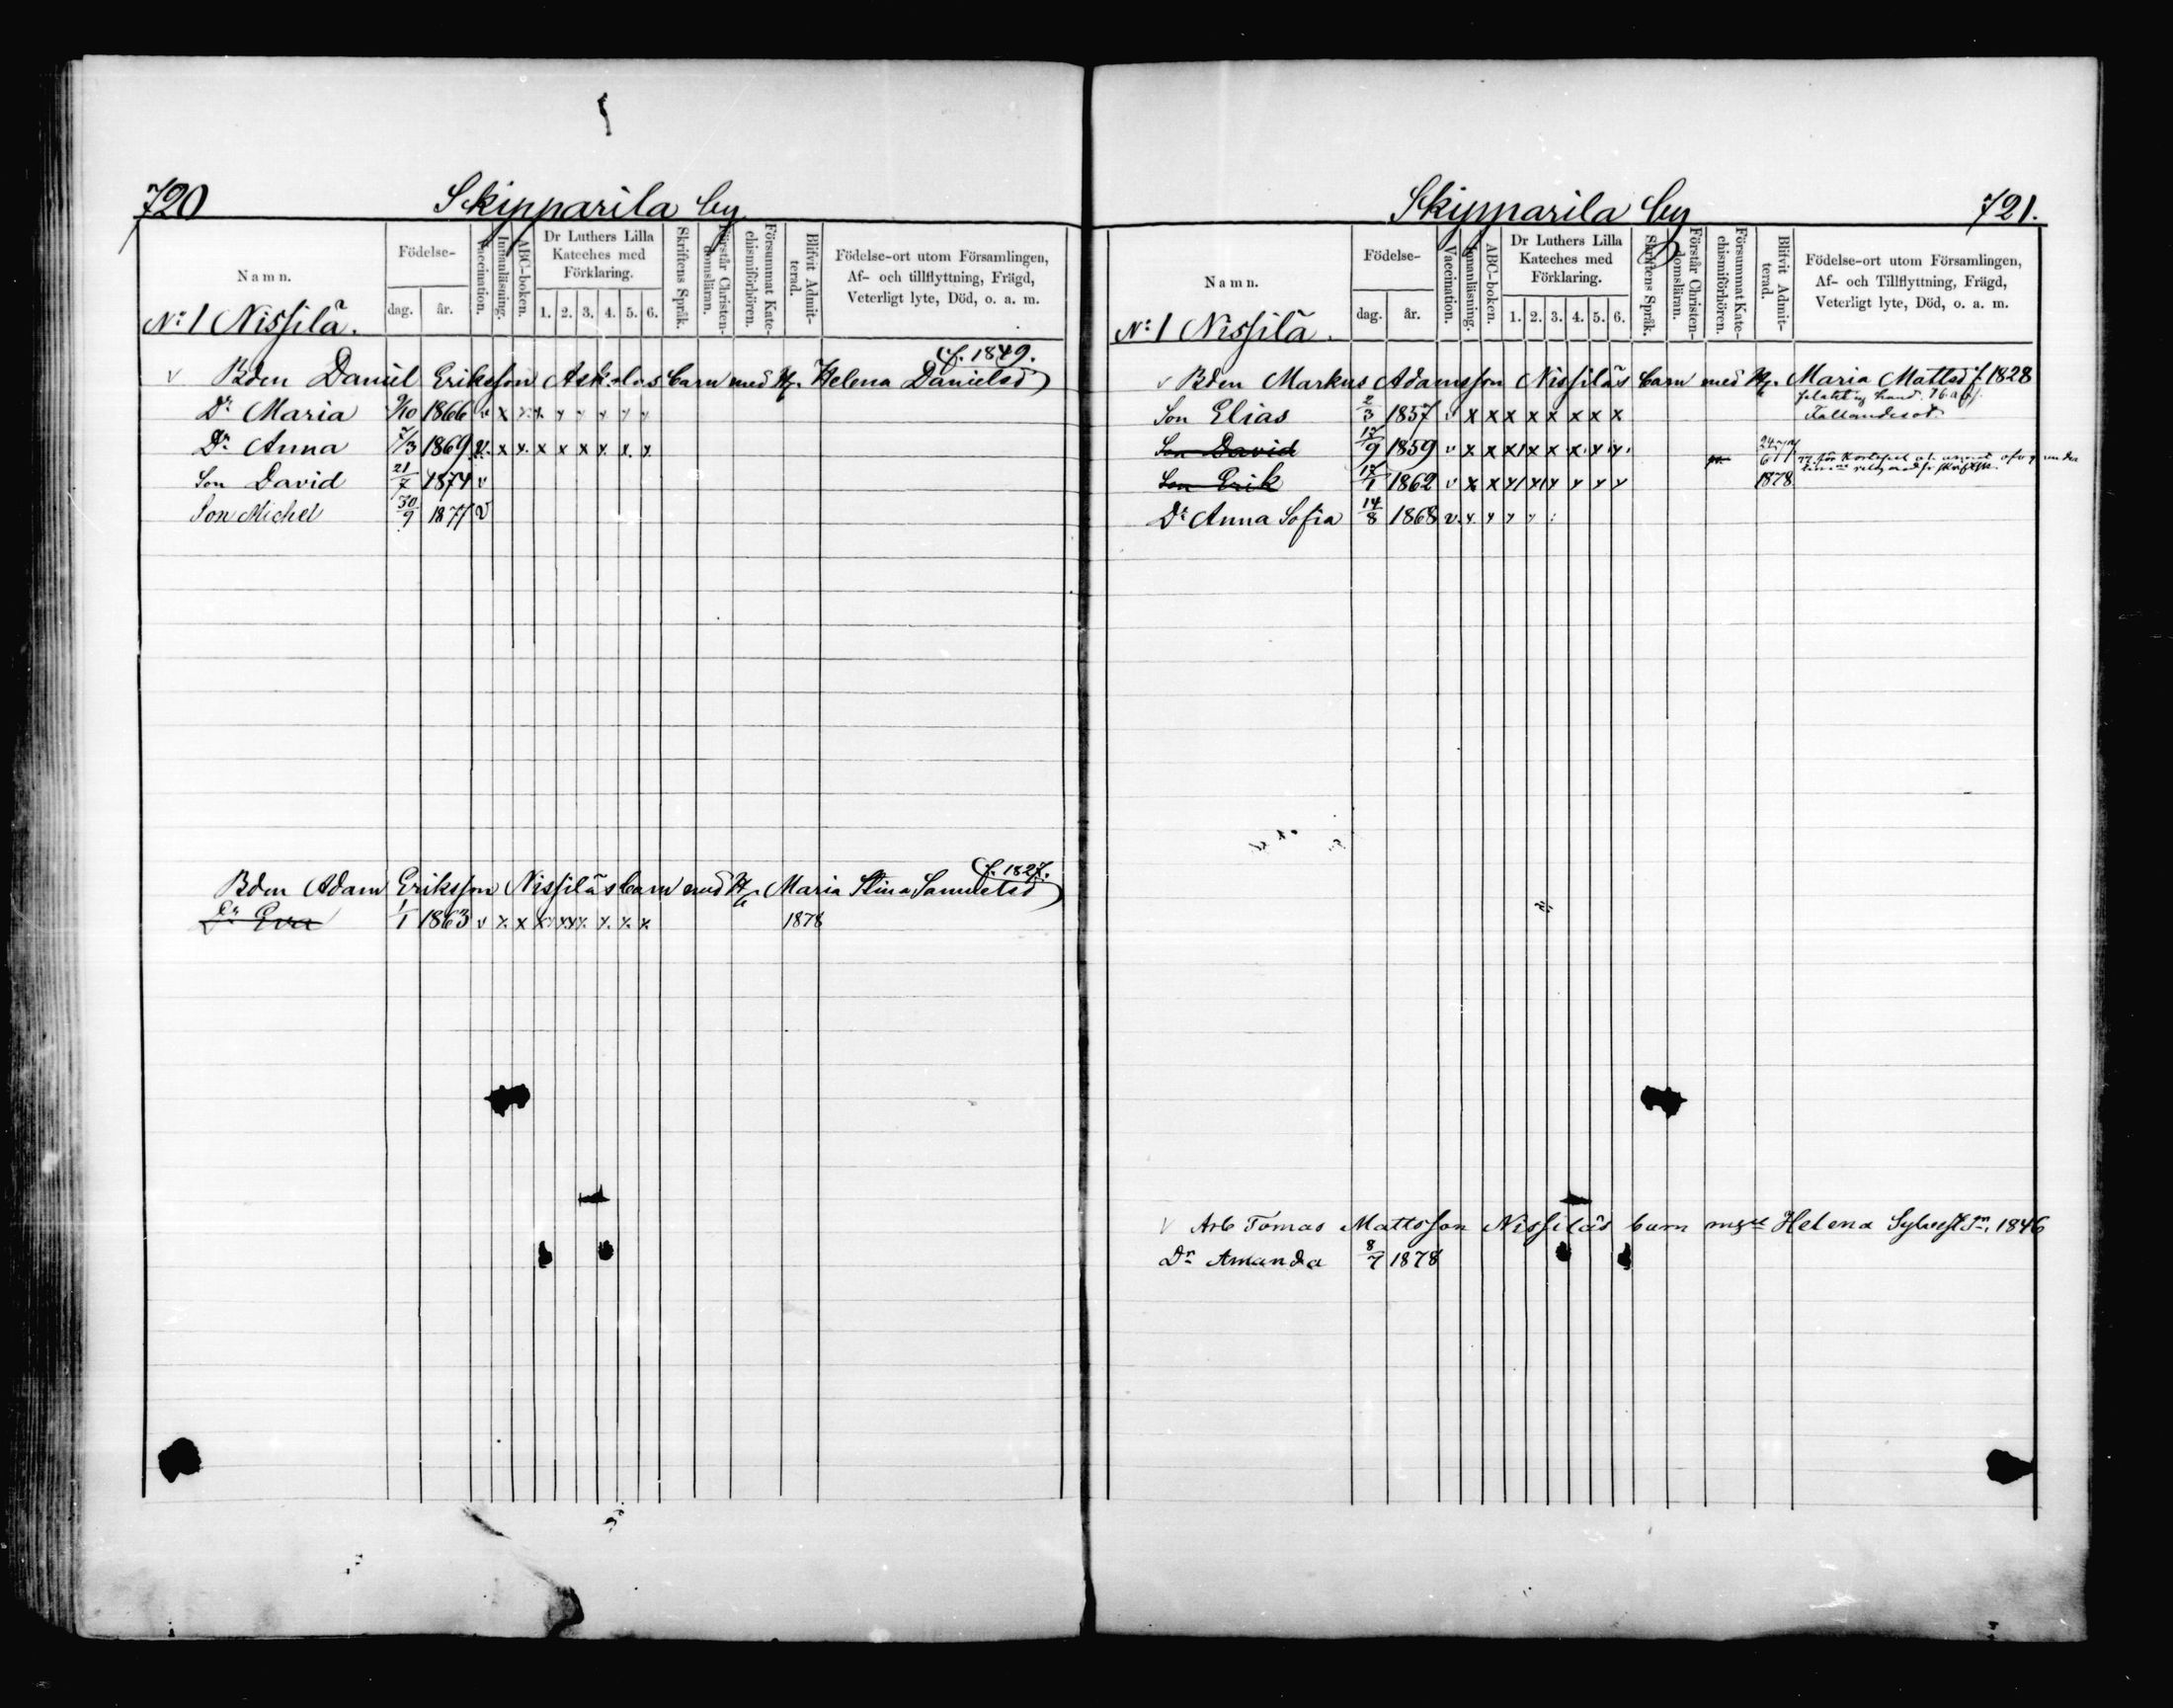 720 Skipparila by
Namn. Födelse- dag. år. Vaccination. Innanläsning. ABC-boken. Dr Luthers Lilla Kateches med Förklaring. 1. 2. 3. 4. 5. 6. Skriftens Språk. Förstår Christendomsläran. Försummat Katechismiförhören. Blifvit Admitterad. Födelse-ort utom Församlingen, Af- och tillflyttning, Frägd, Veterligt lyte, Död, o. a. m.
No 1 Nissilä.
f. 1849.
v Bden Daniel Eriksson Askolas barn med H. Helena Danielsd
Dr Maria 9/10 1866 v x x x x x x x x
Dr Anna 7/3 1869 v. x x x x x x x x
Son David 21/7 1874 v
Son Michel 30/9 1877 v
f. 1827.
Bden Adam Eriksson Nissiläs barn med H. Maria Stina Samuelsd
Dr Eva 1/1 1863 v x x x x x x x x 1878
Skipparila by 721.
Namn. Födelse- dag. år. Vaccination. Innanläsning. ABC-boken. Dr Luthers Lilla Kateches med Förklaring. 1. 2. 3. 4. 5. 6. Skriftens Språk. Förstår Christendomsläran. Försummat Katechismiförhören. Blifvit Admitterad. Födelse-ort utom Församlingen, Af- och Tillflyttning, Frägd, Veterligt lyte, Död, o. a. m.
No 1 Nissilä.
v Bden Markus Adamsson Nissiläs barn med H. Maria Mattsd f 1828
Son Elias 2/3 1857 v x x x x x x x x Fallandesot
Son David 9 1859 v x x x x x x x x
Son Erik 17/1 1862 v x x x x x x x x 1878
Dr Anna Sofia 14/8 1868 v. x x x x
v Arb Tomas Mattsson Nissiläs barn Helena Sylvest 1846
Dr Amanda 8/7 1878